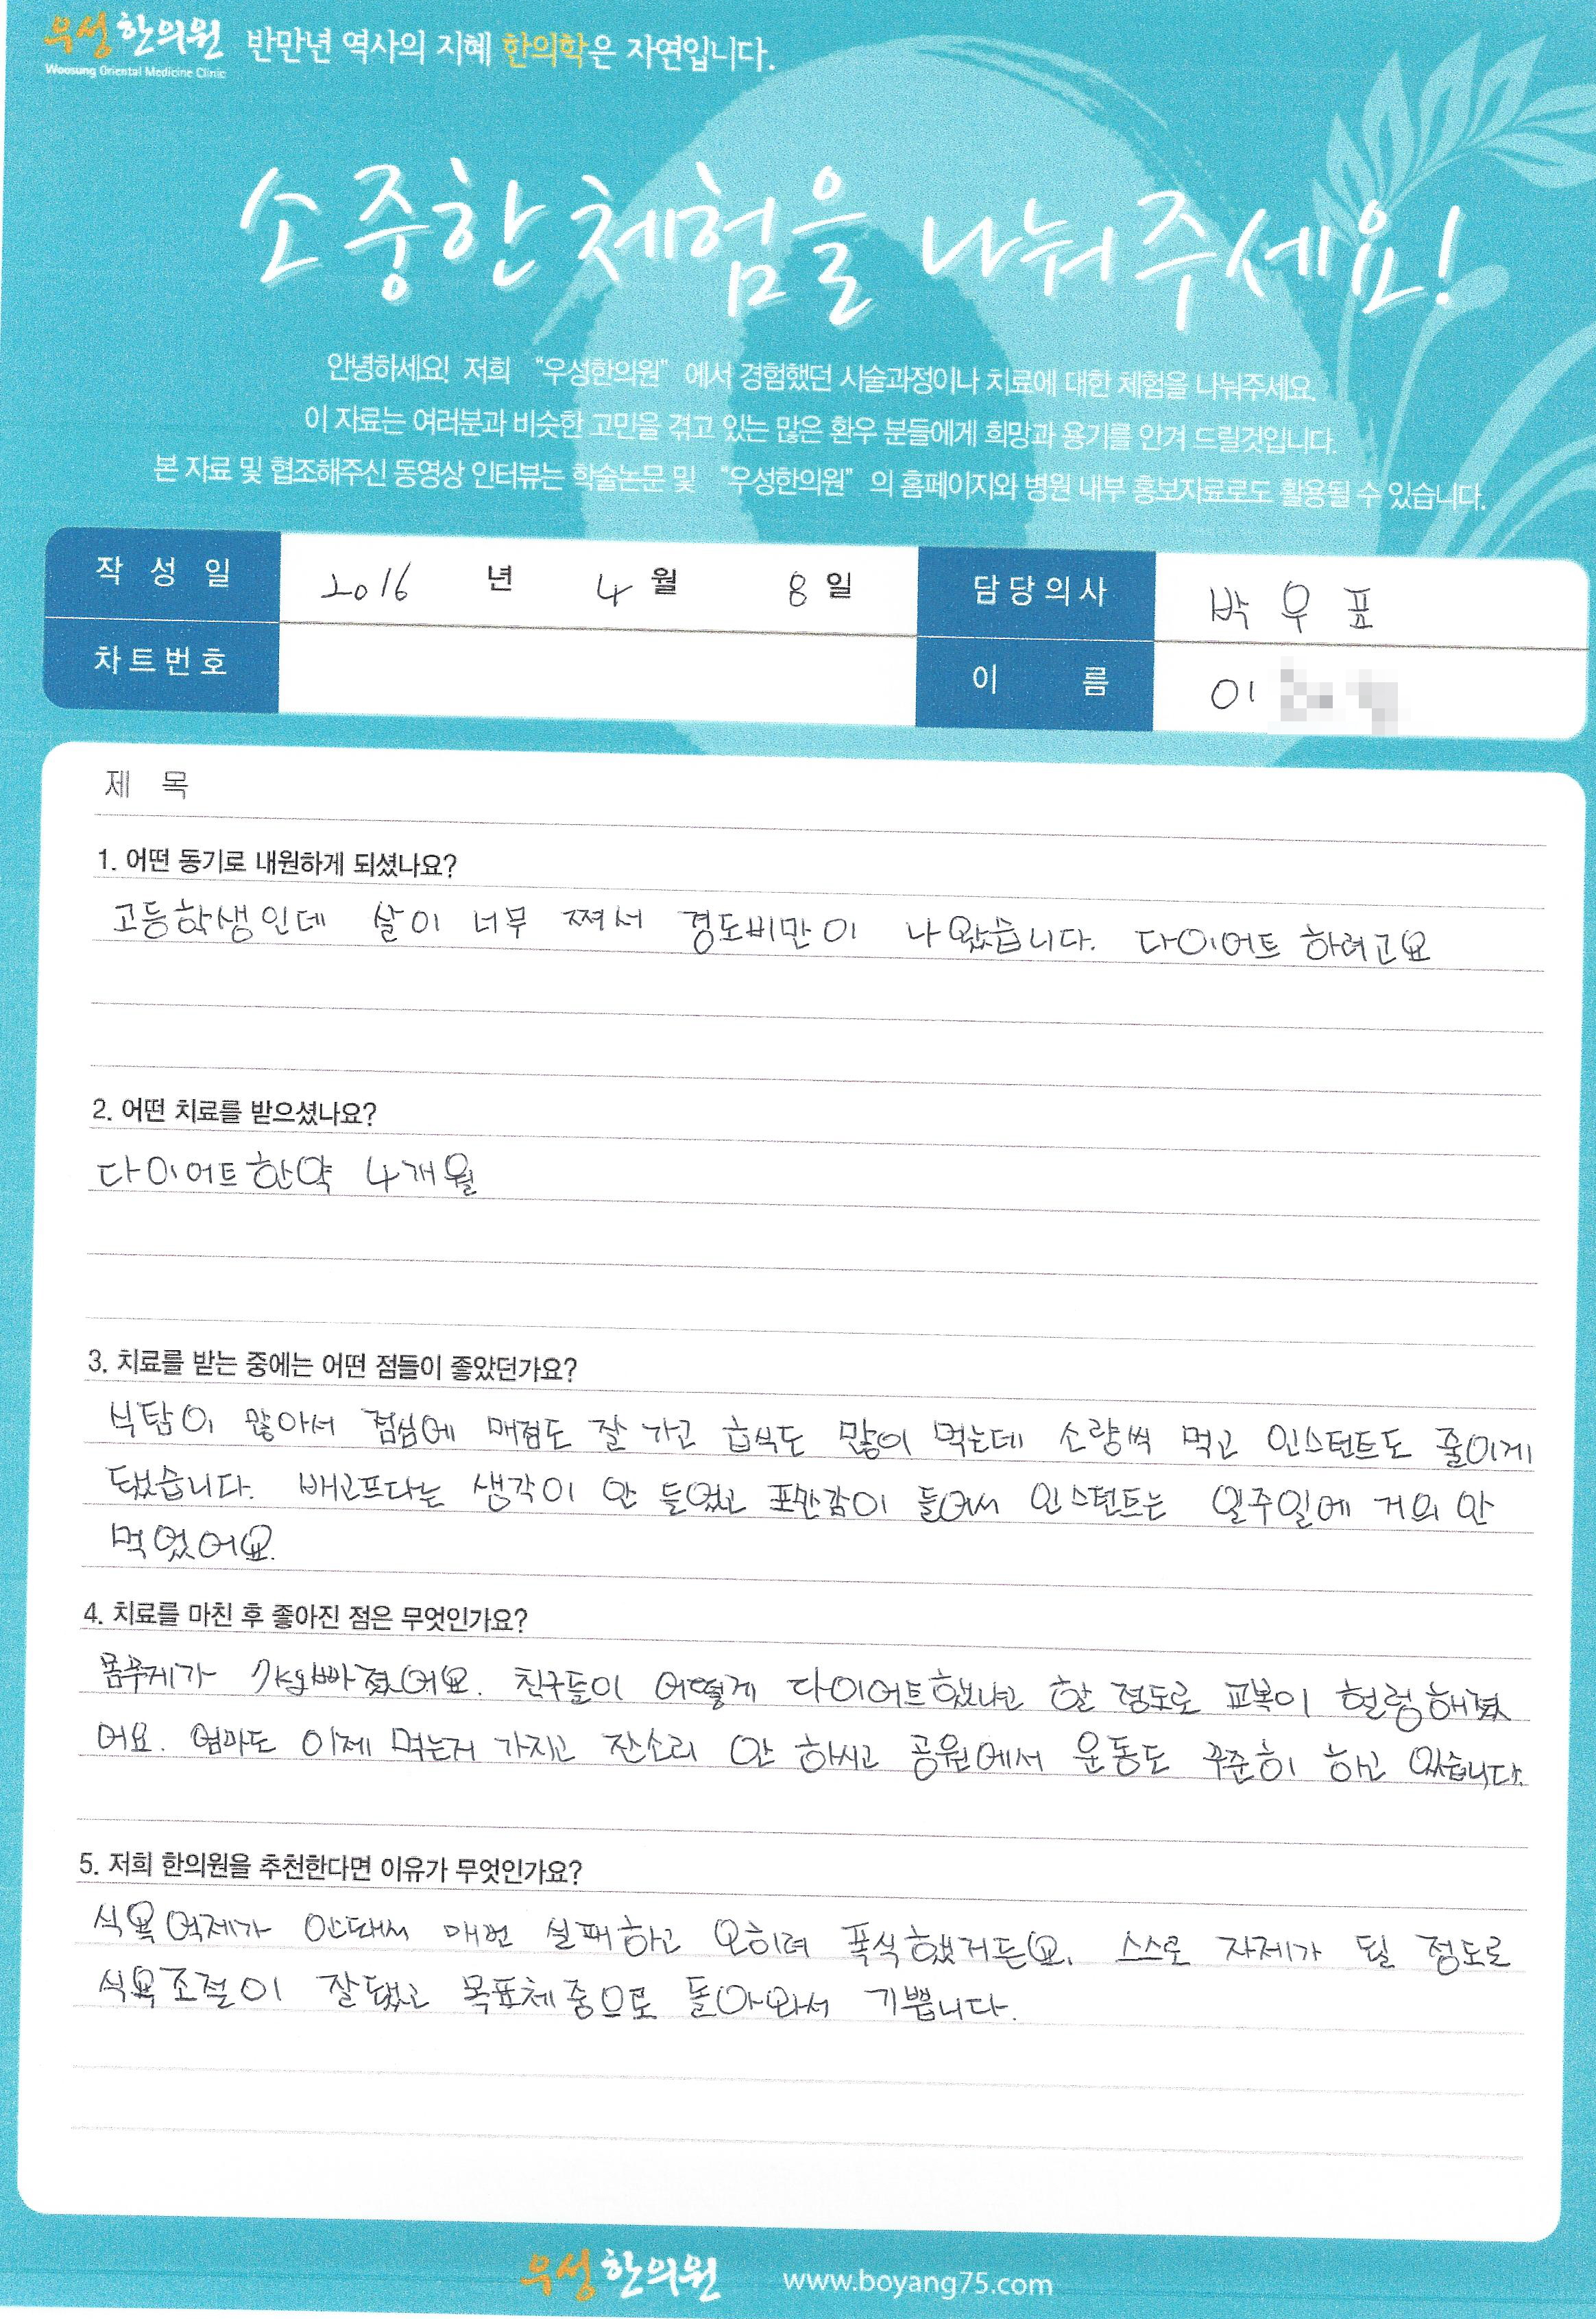 우성한의원 반만년 역사의 지혜 한의학은 자연입니다.
Woosung Oriental Medicine Clinic
소중한 체험을 나눠주세요!
안녕하세요! 저희 "우성한의원" 에서 경험했던 시술과정이나 치료에 대한 체험을 나눠주세요.
이 자료는 여러분과 비슷한 고민을 겪고 있는 많은 환우 분들에게 희망과 용기를 안겨 드릴것입니다.
본 자료 및 협조해주신 동영상 인터뷰는 학술논문 및 "우성한의원" 의 홈페이지와 병원 내부 홍보자료로도 활용될 수 있습니다.
작성일 2016 년 4 월 8 일 담당의사 박우표
차트번호 이름 이
제 목
1. 어떤 동기로 내원하게 되셨나요?
고등학생인데 살이 너무 쪄서 경도비만이 나왔습니다. 다이어트 하려고요
2. 어떤 치료를 받으셨나요?
다이어트한약 4개월
3. 치료를 받는 중에는 어떤 점들이 좋았던가요?
식탐이 많아서 점심에 매점도 잘 가고 급식도 많이 먹는데 소량씩 먹고 인스턴트도 줄이게
됐습니다. 배고프다는 생각이 안 들었고 포만감이 들어서 인스턴트는 일주일에 거의 안
먹었어요.
4. 치료를 마친 후 좋아진 점은 무엇인가요?
몸무게가 빠졌어요. 친구들이 어떻게 다이어트했냐고 할 정도로 교복이 헐렁해졌
어요. 엄마도 이제 먹는거 가지고 잔소리 안 하시고 공원에서 운동도 꾸준히 하고 있습니다.
5. 저희 한의원을 추천한다면 이유가 무엇인가요?
식욕억제가 안돼서 매번 실패하고 오히려 폭식했거든요. 스스로 자제가 될 정도로
식욕조절이 잘됐고 목표체중으로 돌아와서 기쁩니다.
우성한의원 www.boyang75.com